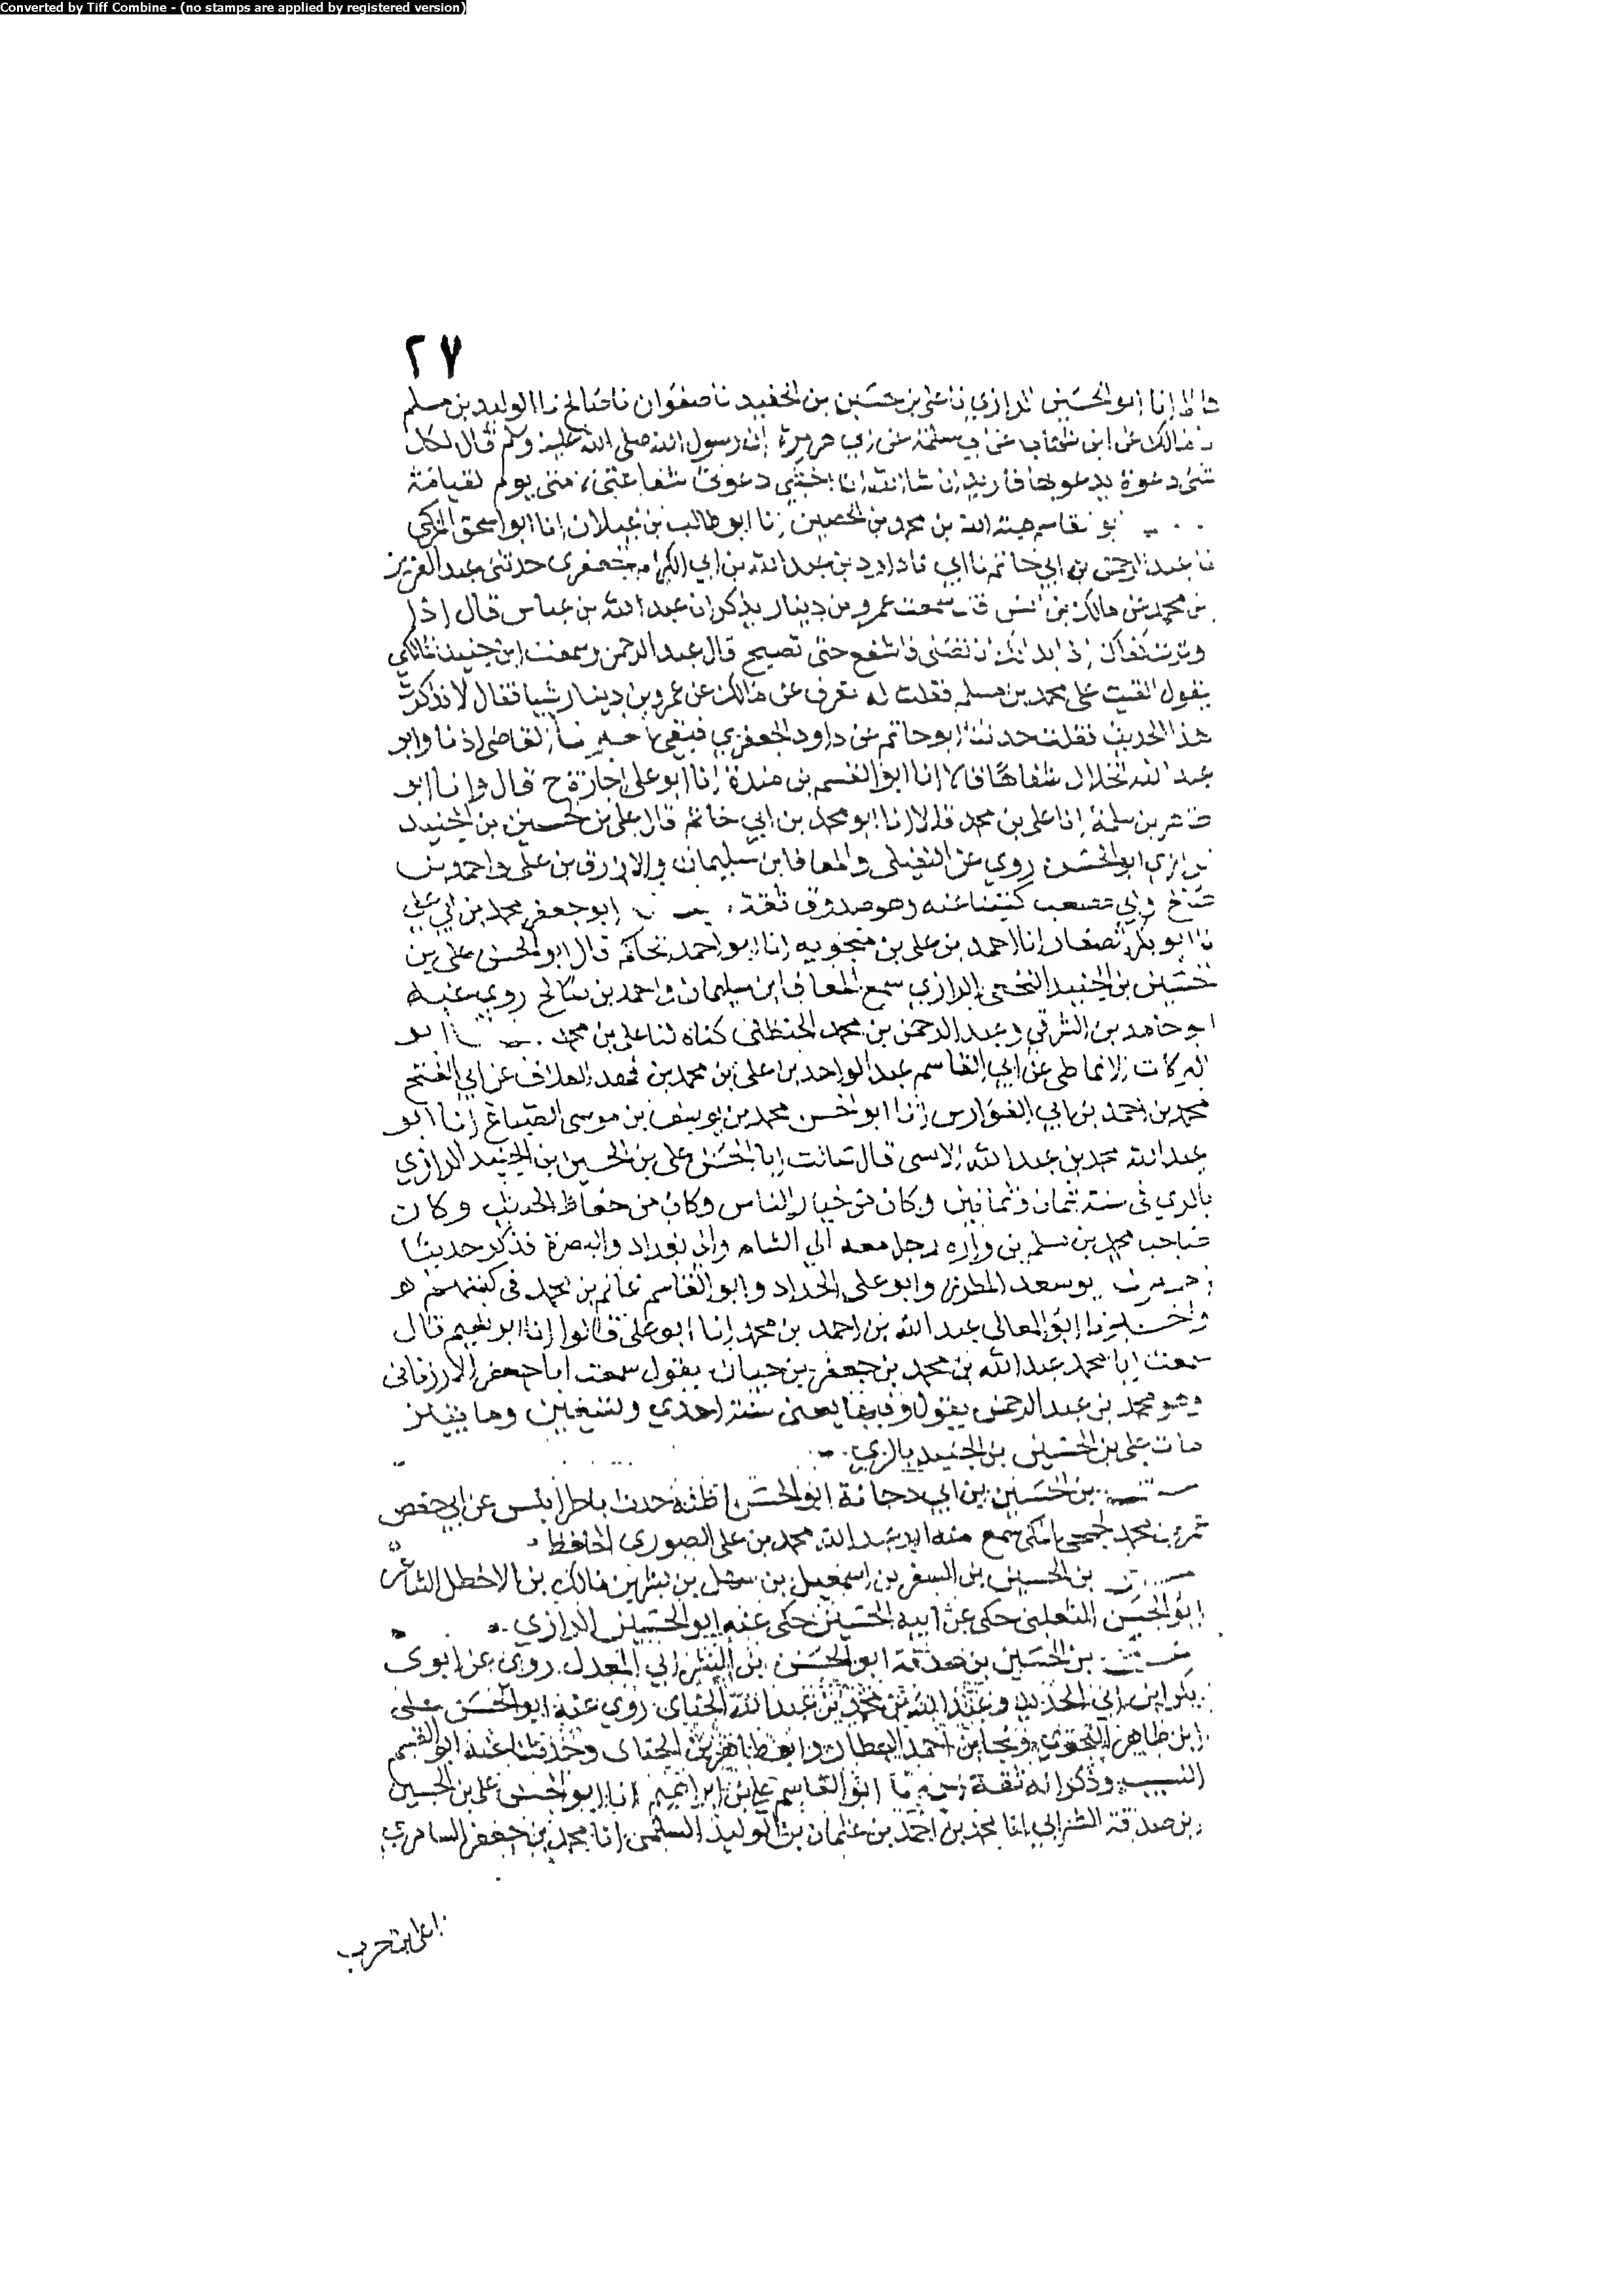 Converted by Tiff Combine - (no stamps are applied by registered version)
٢٧
انا ابو الحسين الرازي نا علي بن حسين بن الجنيد نا صفوان نا صالح نا الوليد بن مسلم
مالك عن ابن شهاب عن ابي سلمة عن ابي هريرة ان رسول الله صلى الله عليه وسلم قال لكل
نبي دعوة يدعو بها فاريد ان شا الله ان اختبي دعوتي شفاعتي يوم القيامة
ابو القاسم هبة الله بن محمد بن الحصين انا ابو طالب بن غيلان انا ابو اسحق المزكي
نا عبد الرحمن بن ابي حاتم نا ابي نا داود بن عبد الله بن ابي الكرام الجعفري حدثني عبد العزيز
بن محمد عن مالك بن انس قال سمعت عمرو بن دينار يذكر ان عبد الله بن عباس قال اذا
فاشفع حتى تصبح قال عبد الرحمن وسمعت ابن جنيد المالكي
يقول القيت على محمد بن مسلم فقلت له تعرف عن مالك عن عمرو بن دينار شيا فقال لا فذكرت
هذا الحديث فقلت حدثنا ابو حاتم عن داود الجعفري فبقي القاضي اذنا وابو
عبد الله الخلال شفاها قالا انا ابو القسم بن مندة انا ابو علي اجازة ح قال وانا ابو
طاهر بن سلمة انا علي بن محمد قالا انا ابو محمد بن ابي حاتم قال علي بن الحسين بن الجنيد
الرازي ابو الحسن روي عن النفيلى والمعافا بن سليمان والازرق بن علي واحمد بن
صالح وابي مصعب كتبنا عنه وهو صدوق ثقة ابو جعفر محمد بن ابي علي
نا ابو بكر الصفار انا احمد بن علي بن منجويه انا ابو احمد الحاكم قال ابو الحسن علي بن
الحسين بن الجنيد النخعي الرازي سمع المعافى بن سليمان واحمد بن صالح روي عنه
ابو حامد بن الشرقي وعبد الرحمن بن محمد الحنظلي كناه لنا علي بن محمد ابو
البركات الانماطي عن ابي القاسم عبد الواحد بن علي بن محمد بن فهد العلاف عن ابي الفتح
محمد بن احمد بن ابي الفوارس انا ابو الحسن محمد بن يوسف بن موسى الصباغ انا ابو
عبد الله محمد بن عبد الله قال مات ابا الحسن علي بن الحسين بن الجنيد الرازي
بالري في سنة ثمان وثمانين وكان من خيار الناس وكان من حفاظ الحديث وكان
صاحب محمد بن مسلم بن واره رحل معه الي الشام والي بغداد والبصرة فذكر حديثا
ابو سعد المطرز وابو علي الحداد وابو القاسم غانم بن محمد في كتبهم
واخبرنا ابو المعالي عبد الله بن احمد بن محمد انا ابو علي قالوا انا ابو نعيم قال
سمعت ابا محمد عبد الله بن محمد بن جعفر بن حيان يقول سمعت ابا جعفر الارزناني
وهو محمد بن عبد الرحمن يقول وفيها يعني سنة احدي وتسعين وما يتين
مات علي بن الحسين بن الجنيد بالري
بن الحسين بن ابي دجانة ابو الحسن اظنه حدث باطرابلس عن ابي حفص
عمر بن محمد الجمحي المكي سمع منه ابو عبد الله محمد بن علي الصوري الحافظ
بن الحسين بن السفر بن اسمعيل بن سهل بن بشر بن مالك بن الاخطل الشاعر
ابو الحسن التغلبي حكى عن ابيه الحسين حكى عنه ابو الحسين الرازي
بن الحسين بن صدقة ابو الحسن بن الشرابي المعدل روي عن ابوي
بكر ابن ابي الحديد وعبد الله بن محمد بن عبد الله الحنائ روي عنه ابو الحسن علي
ابن طاهر النحوي ونجا بن احمد العطار وابو طاهر بن الحنائ وحدثنا عنه ابو القسم
النسيب وذكر انه ثقة ابو القاسم علي بن ابراهيم انا ابو الحسن علي بن الحسين
بن صدقة الشرابي انا محمد بن احمد بن عثمان بن الوليد السلمي انا محمد بن جعفر السامري
نا علي بن حرب